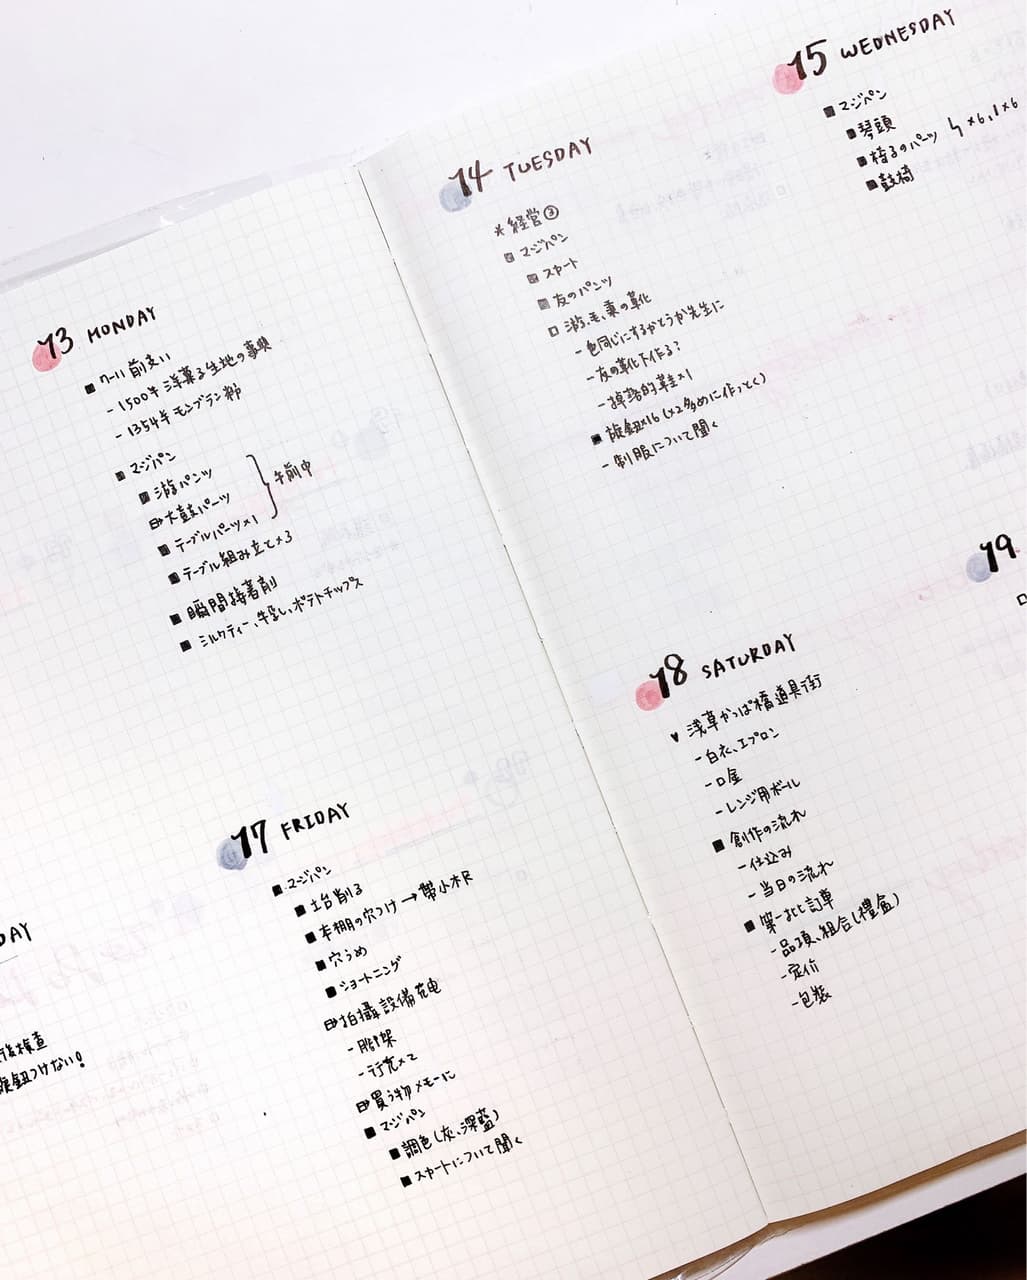 13 MONDAY
■ クール 前支い
- 1500年 洋菓子生地の事典
- 1354年 モンブラン
■ マジパン
■ 游パンツ
太鼓パーツ
■ テーブルパーツ×1
午前中
■ テーブル組み立て×3
■ 瞬間接着剤
■ ミルクティー、牛乳、ポテトチップス
14 TUESDAY
* 経営③
■ マジパン
■ スカート
■ 友のパンツ
□ 游、毛、票の靴
- 色同じにするかどうか先生に
- 友の靴下作る?
- 掉落的鞋×1
■ 旋鈕×16(×2多めに作っとく)
- 制服について聞く
15 WEDNESDAY
■ マジパン
■ 琴頭
■ 椅子のパーツ ㄣ×6, l×6
■ 鼓椅
DAY
検査
旋鈕つけない!
17 FRIDAY
■ マジパン
■ 土台削る
■ 本棚の穴つけ → 帶小木尺
■ 穴うめ
■ ショートニング
拍攝設備充電
- 腳架
- 行充×2
買う物メモに
■ マジパン
■ 調色(灰、深藍)
■ スカートについて聞く
18 SATURDAY
♥ 浅草かっぱ橋道具街
- 白衣、エプロン
- 口金
- レンジ用ボール
■ 創作の流れ
- 仕込み
- 当日の流れ
■ 第一批訂單
- 品項、組合(禮盒)
- 定價
- 包裝
19